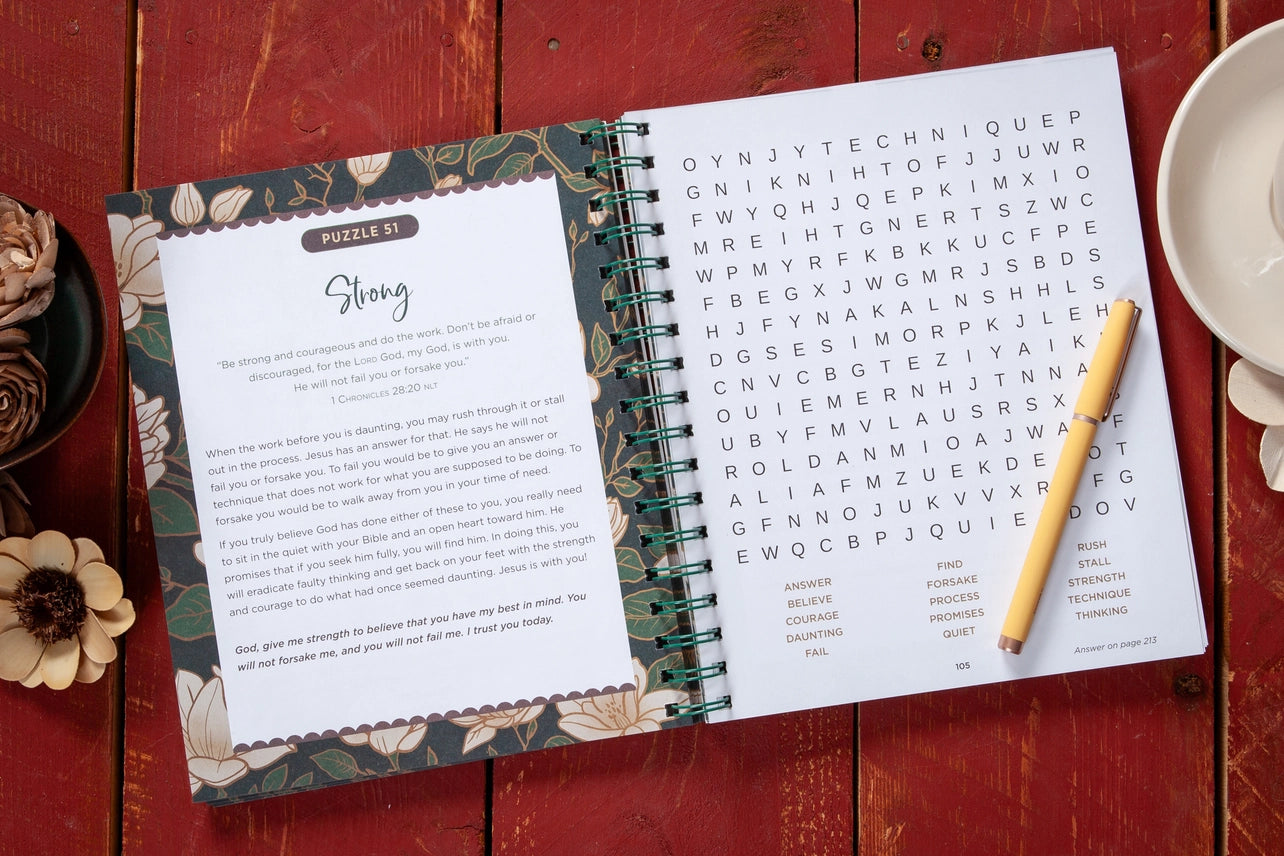 PUZZLE 51
Strong
“Be strong and courageous and do the work. Don't be afraid or
discouraged, for the LORD God, my God, is with you.
He will not fail you or forsake you.”
1 CHRONICLES 28:20 NLT
When the work before you is daunting, you may rush through it or stall
out in the process. Jesus has an answer for that. He says he will not
fail you or forsake you. To fail you would be to give you an answer or
technique that does not work for what you are supposed to be doing. To
forsake you would be to walk away from you in your time of need.
If you truly believe God has done either of these to you, you really need
to sit in the quiet with your Bible and an open heart toward him. He
promises that if you seek him fully, you will find him. In doing this, you
will eradicate faulty thinking and get back on your feet with the strength
and courage to do what had once seemed daunting. Jesus is with you!
God, give me strength to believe that you have my best in mind. You
will not forsake me, and you will not fail me. I trust you today.
O Y N J Y T E C H N I Q U E P
G N I K N I H T O F J J U W R
F W Y Q H J Q E P K I M X I O
M R E I H T G N E R T S Z W C
W P M Y R F K B K K U C F P E
F B E G X J W G M R J S B D S
H J F Y N A K A L N S H H L S
D G S E S I M O R P K J L E H
C N V C B G T E Z I Y A I K
O U I E M E R N H J T N N A
U B Y F M V L A U S R S X
R O L D A N M I O A J W A F
A L I A F M Z U E K D E O T
G F N N O J U K V V X R F G
E W Q C B P J Q U I E D O V
ANSWER
BELIEVE
COURAGE
DAUNTING
FAIL
FIND
FORSAKE
PROCESS
PROMISES
QUIET
RUSH
STALL
STRENGTH
TECHNIQUE
THINKING
105
Answer on page 213